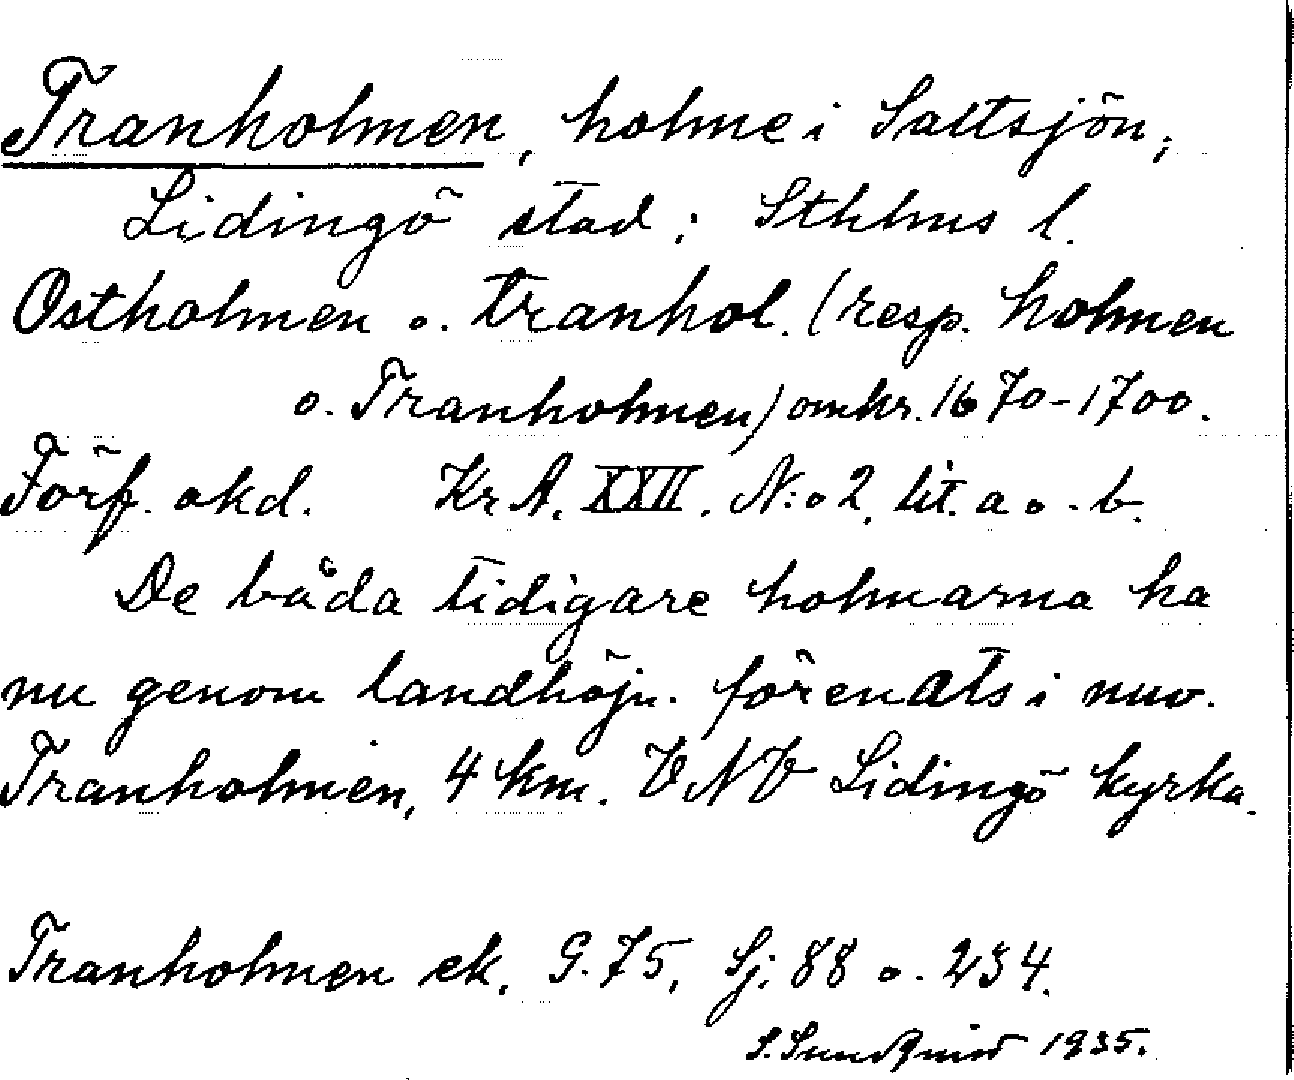 Tranholmen, holme i Saltsjön,
Lidingö stad; Sthlms l.
Ostholmen o. tranhol. (resp. holmen
o. Tranholmen) omkr. 1670-1700.
Förf. okd. Kr A. XXII. N:o 2. lit. a o. b.
De båda tidigare holmarna ha
nu genom landhöjn. förenats i nuv.
Tranholmen, 4 km. VNV Lidingö kyrka.
Tranholmen ek. G. 75, Sj: 88 o. 234.
S. Sundquist 1935.